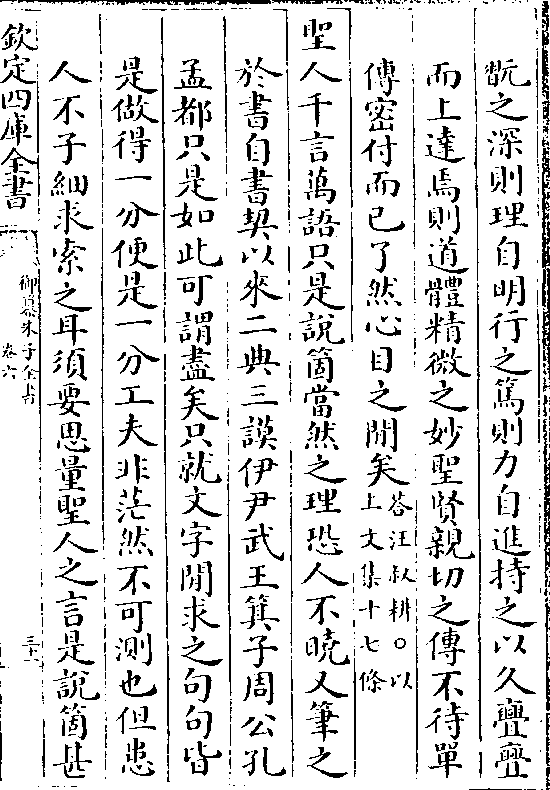 翫之深則理自明行之篤則力自進持之以久亹亹
而上達焉則道體精微之妙聖賢親切之傳不待單
傳密付而已了然心目之閒矣答汪叔耕○以
上文集十七條
聖人千言萬語只是說箇當然之理恐人不曉又筆之
於書自書契以來二典三謨伊尹武王箕子周公孔
孟都只是如此可謂盡矣只就文字閒求之句句皆
是做得一分便是一分工夫非茫然不可測也但患
人不子細求索之耳須要思量聖人之言是說箇甚
欽定四庫全書
御纂朱子全書
卷六
三十二